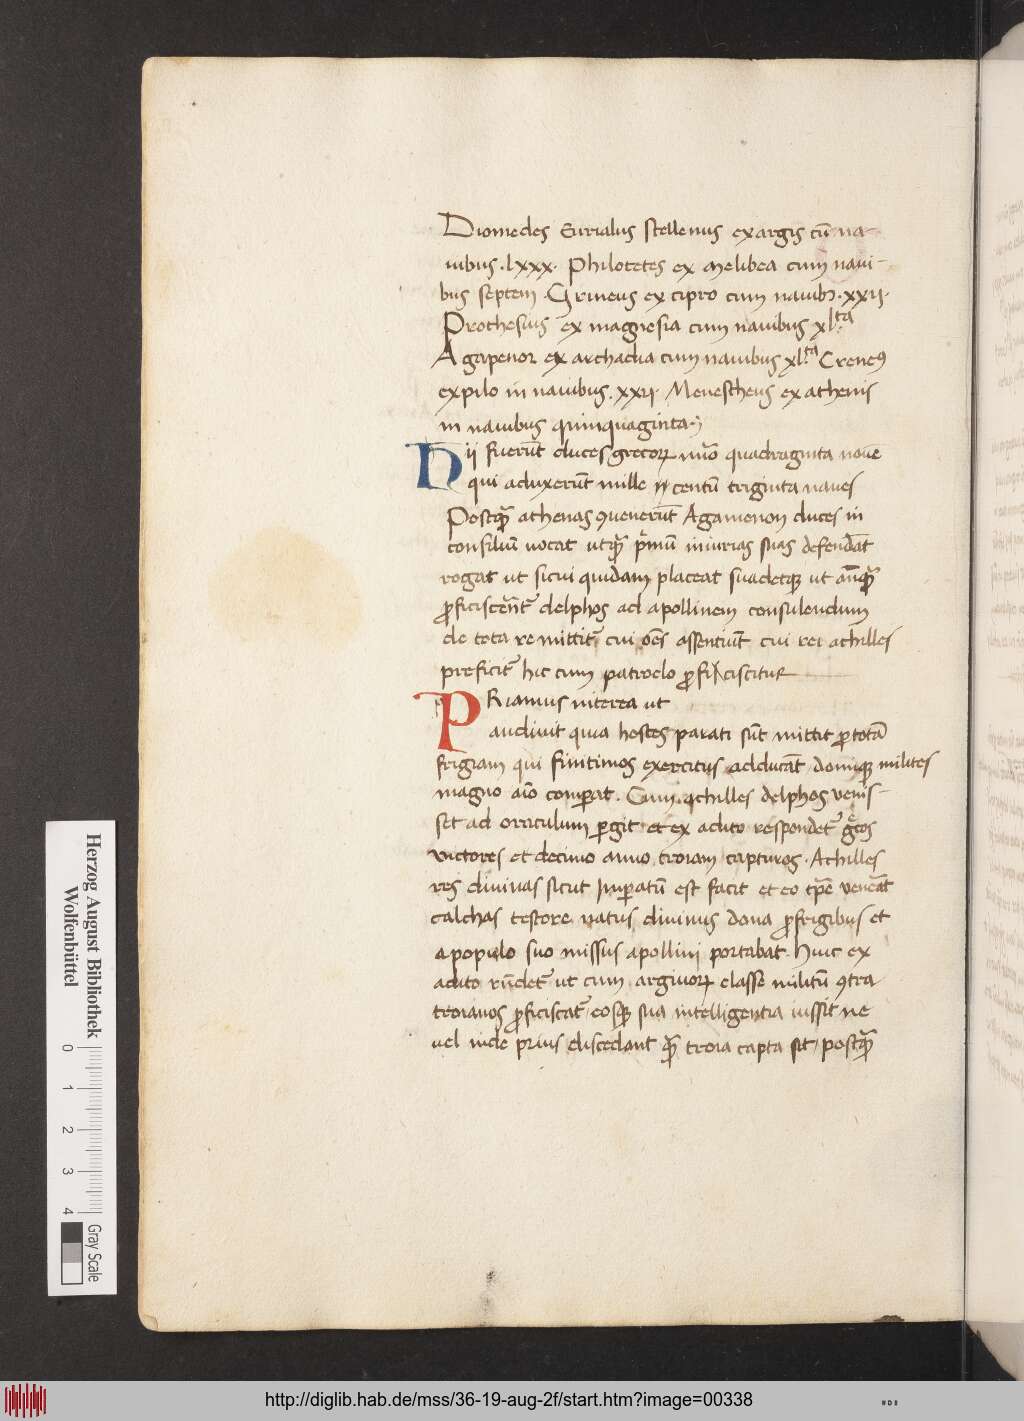 Diomedes Eurialus stellenus ex argis cū na-
uibus .lxxx. Philotetes ex melibea cum naui-
bus septem . Grineus ex cipro cum nauibꝫ .xxii.
Prothesius ex magnesia cum nauibus xl.ta
Agapenor ex archadia cum nauibus xl.ta Creneꝰ
ex pilo in nauibus . xxii . Menestheus ex athenis
in nauibus quinquaginta.
Hii fuerūt duces grecoꝝ nūo quadraginta nouē
qui aduxerūt mille centū triginta naues
Postqᷓ athenas ꝯuenerūt Agamenon duces in
consiliū uocat utqᷓ pͥmū iniurias suas defendāt
rogat ut sicui quidam placeat suadetqꝫ ut anqᷓ
ꝓficiscerēt᷑ delphos ad apollinem consulendum
de tota re mittit᷑ cui oēs assentiūt cui rei achilles
preficit᷑ hic cum patroclo ꝓficiscitur
PRiamus interea ut
audiuit quia hostes parati sūt mittit ꝑ totā
frigiam qui finitimos exercitus adducāt domiqꝫ milites
magno aīo comꝑat . Cum achilles delphos uenis-
set ad oraculum ꝑgit et ex adito respondet᷑ gͤcos
uictores et decimo anno troiam capturos . Achilles
res diuinas sicut imꝑatū est facit et eo tꝑe ueneāt
calchas testore natus diuinus dona ꝓ frigibus et
a populo suo missus apollini portabat . huic ex
adito rn̄det᷑ ut cum argiuoꝝ classe militū ꝯtra
troianos ꝓficiscat᷑ eosqꝫ sua intelligentia iussit ne
uel inde prius discedant qᷓ troia capta sit / postqᷓ
Herzog August Bibliothek
Wolfenbüttel
0 1 2 3 4
Gray Scale
http://diglib.hab.de/mss/36-19-aug-2f/start.htm?image=00338